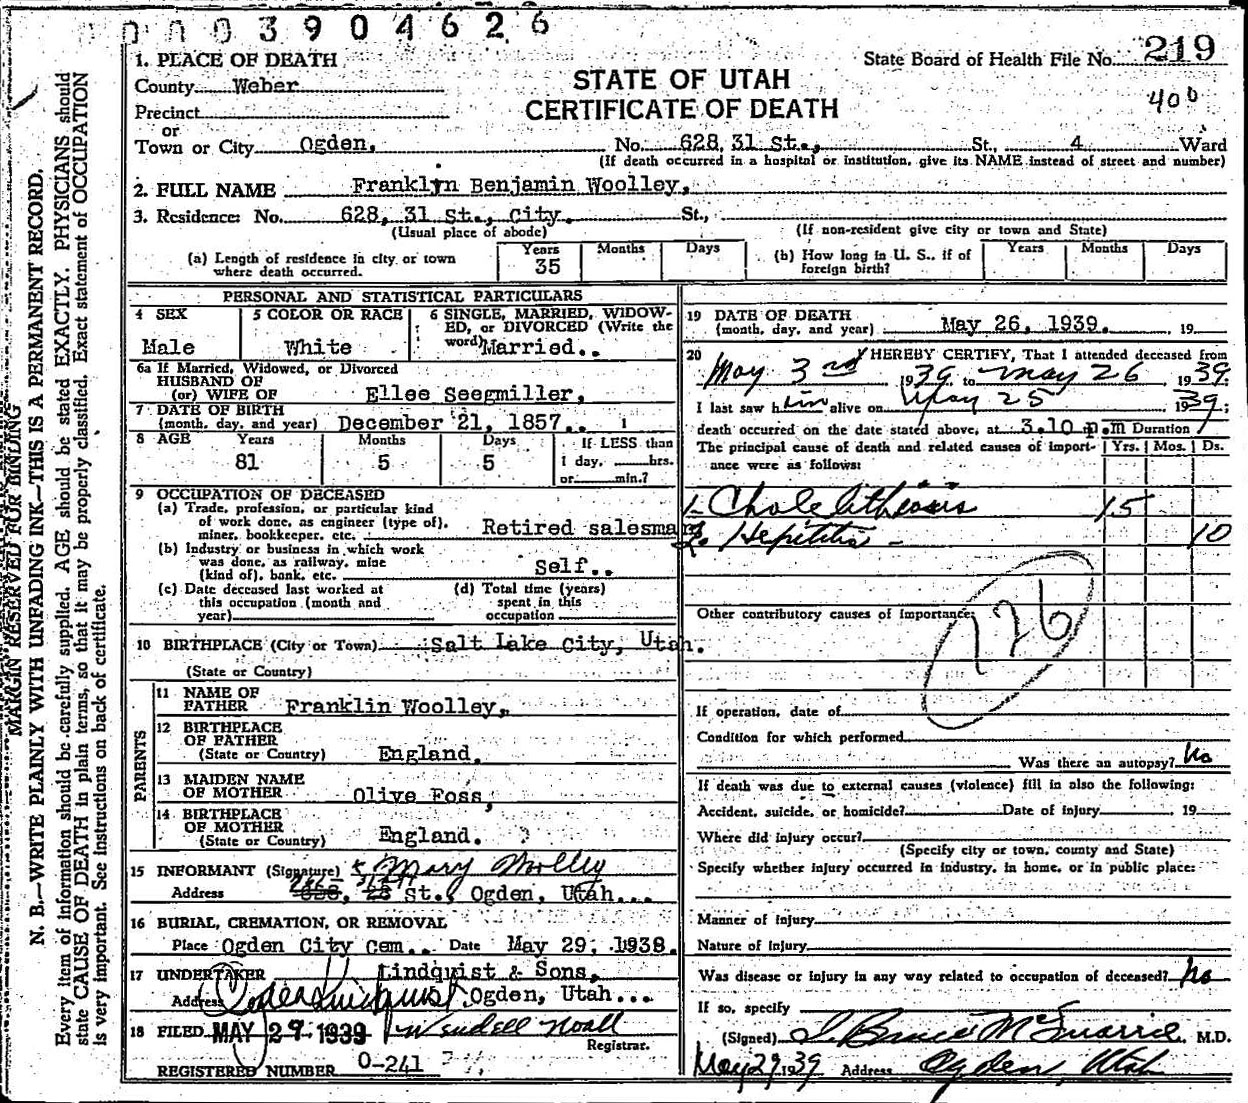 0003904626
1. PLACE OF DEATH
State Board of Health File No. 219
County Weber
STATE OF UTAH
400
Precinct
CERTIFICATE OF DEATH
or
Town or City Ogden, No. 628, 31 St., St., 4 Ward
(If death occurred in a hospital or institution, give its NAME instead of street and number)
2. FULL NAME Franklyn Benjamin Woolley,
3. Residence: No. 628, 31 St., City. St.,
(Usual place of abode) (If non-resident give city or town and State)
(a) Length of residence in city or town where death occurred. Years 35 Months Days
(b) How long in U. S., if of foreign birth? Years Months Days
PERSONAL AND STATISTICAL PARTICULARS
4 SEX Male
5 COLOR OR RACE White
6 SINGLE, MARRIED, WIDOW-
ED, or DIVORCED (Write the
word) Married..
6a If Married, Widowed, or Divorced
HUSBAND OF
(or) WIFE OF Ellee Seegmiller,
7 DATE OF BIRTH
(month, day, and year) December 21, 1857..
8 AGE Years 81 Months 5 Days 5
If LESS than
1 day, hrs.
or min.?
9 OCCUPATION OF DECEASED
(a) Trade, profession, or particular kind
of work done, as engineer (type of),
miner, bookkeeper, etc. Retired salesman
(b) Industry or business in which work
was done, as railway, mine
(kind of), bank, etc. Self..
(c) Date deceased last worked at
this occupation (month and
year)
(d) Total time (years)
spent in this
occupation
10 BIRTHPLACE (City or Town) Salt Lake City, Utah.
(State or Country)
PARENTS
11 NAME OF
FATHER Franklin Woolley,
12 BIRTHPLACE
OF FATHER
(State or Country) England.
13 MAIDEN NAME
OF MOTHER Olive Foss,
14 BIRTHPLACE
OF MOTHER
(State or Country) England. ?
15 INFORMANT (Signature) Mary Wolley
Address St., Ogden, Utah...
16 BURIAL, CREMATION, OR REMOVAL
Place Ogden City Cem.. Date May 29, 1938.
17 UNDERTAKER Lindquist & Sons,
Address Ogden, Utah...
18 FILED MAY 29 1939 Wendell Noall
Registrar.
REGISTERED NUMBER 0-241
19 DATE OF DEATH
(month, day, and year) May 26, 1939. , 19
20 I HEREBY CERTIFY, That I attended deceased from
May 3rd 1939 to May 26 1939;
I last saw him alive on May 25 1939;
death occurred on the date stated above, at 3.10 p.m Duration
The principal cause of death and related causes of import-
ance were as follows: Yrs. Mos. Ds.
1. Cholelithiasis 15
2. Hepititis - 10
126
Other contributory causes of Importance:
If operation, date of
Condition for which performed
Was there an autopsy? No
If death was due to external causes (violence) fill in also the following:
Accident, suicide, or homicide? Date of injury 19
Where did injury occur?
(Specify city or town, county and State)
Specify whether injury occurred in industry, in home, or in public place:
Manner of injury
Nature of Injury
Was disease or injury in any way related to occupation of deceased? No
If so, specify
(Signed) I. Bruce McQuarrie, M.D.
May 29, 1939 Address Ogden, Utah
MARGIN RESERVED FOR BINDING
N. B.—WRITE PLAINLY WITH UNFADING INK—THIS IS A PERMANENT RECORD.
Every item of information should be carefully supplied. AGE should be stated EXACTLY. PHYSICIANS should
state CAUSE OF DEATH in plain terms, so that it may be properly classified. Exact statement of OCCUPATION
is very important. See instructions on back of certificate.